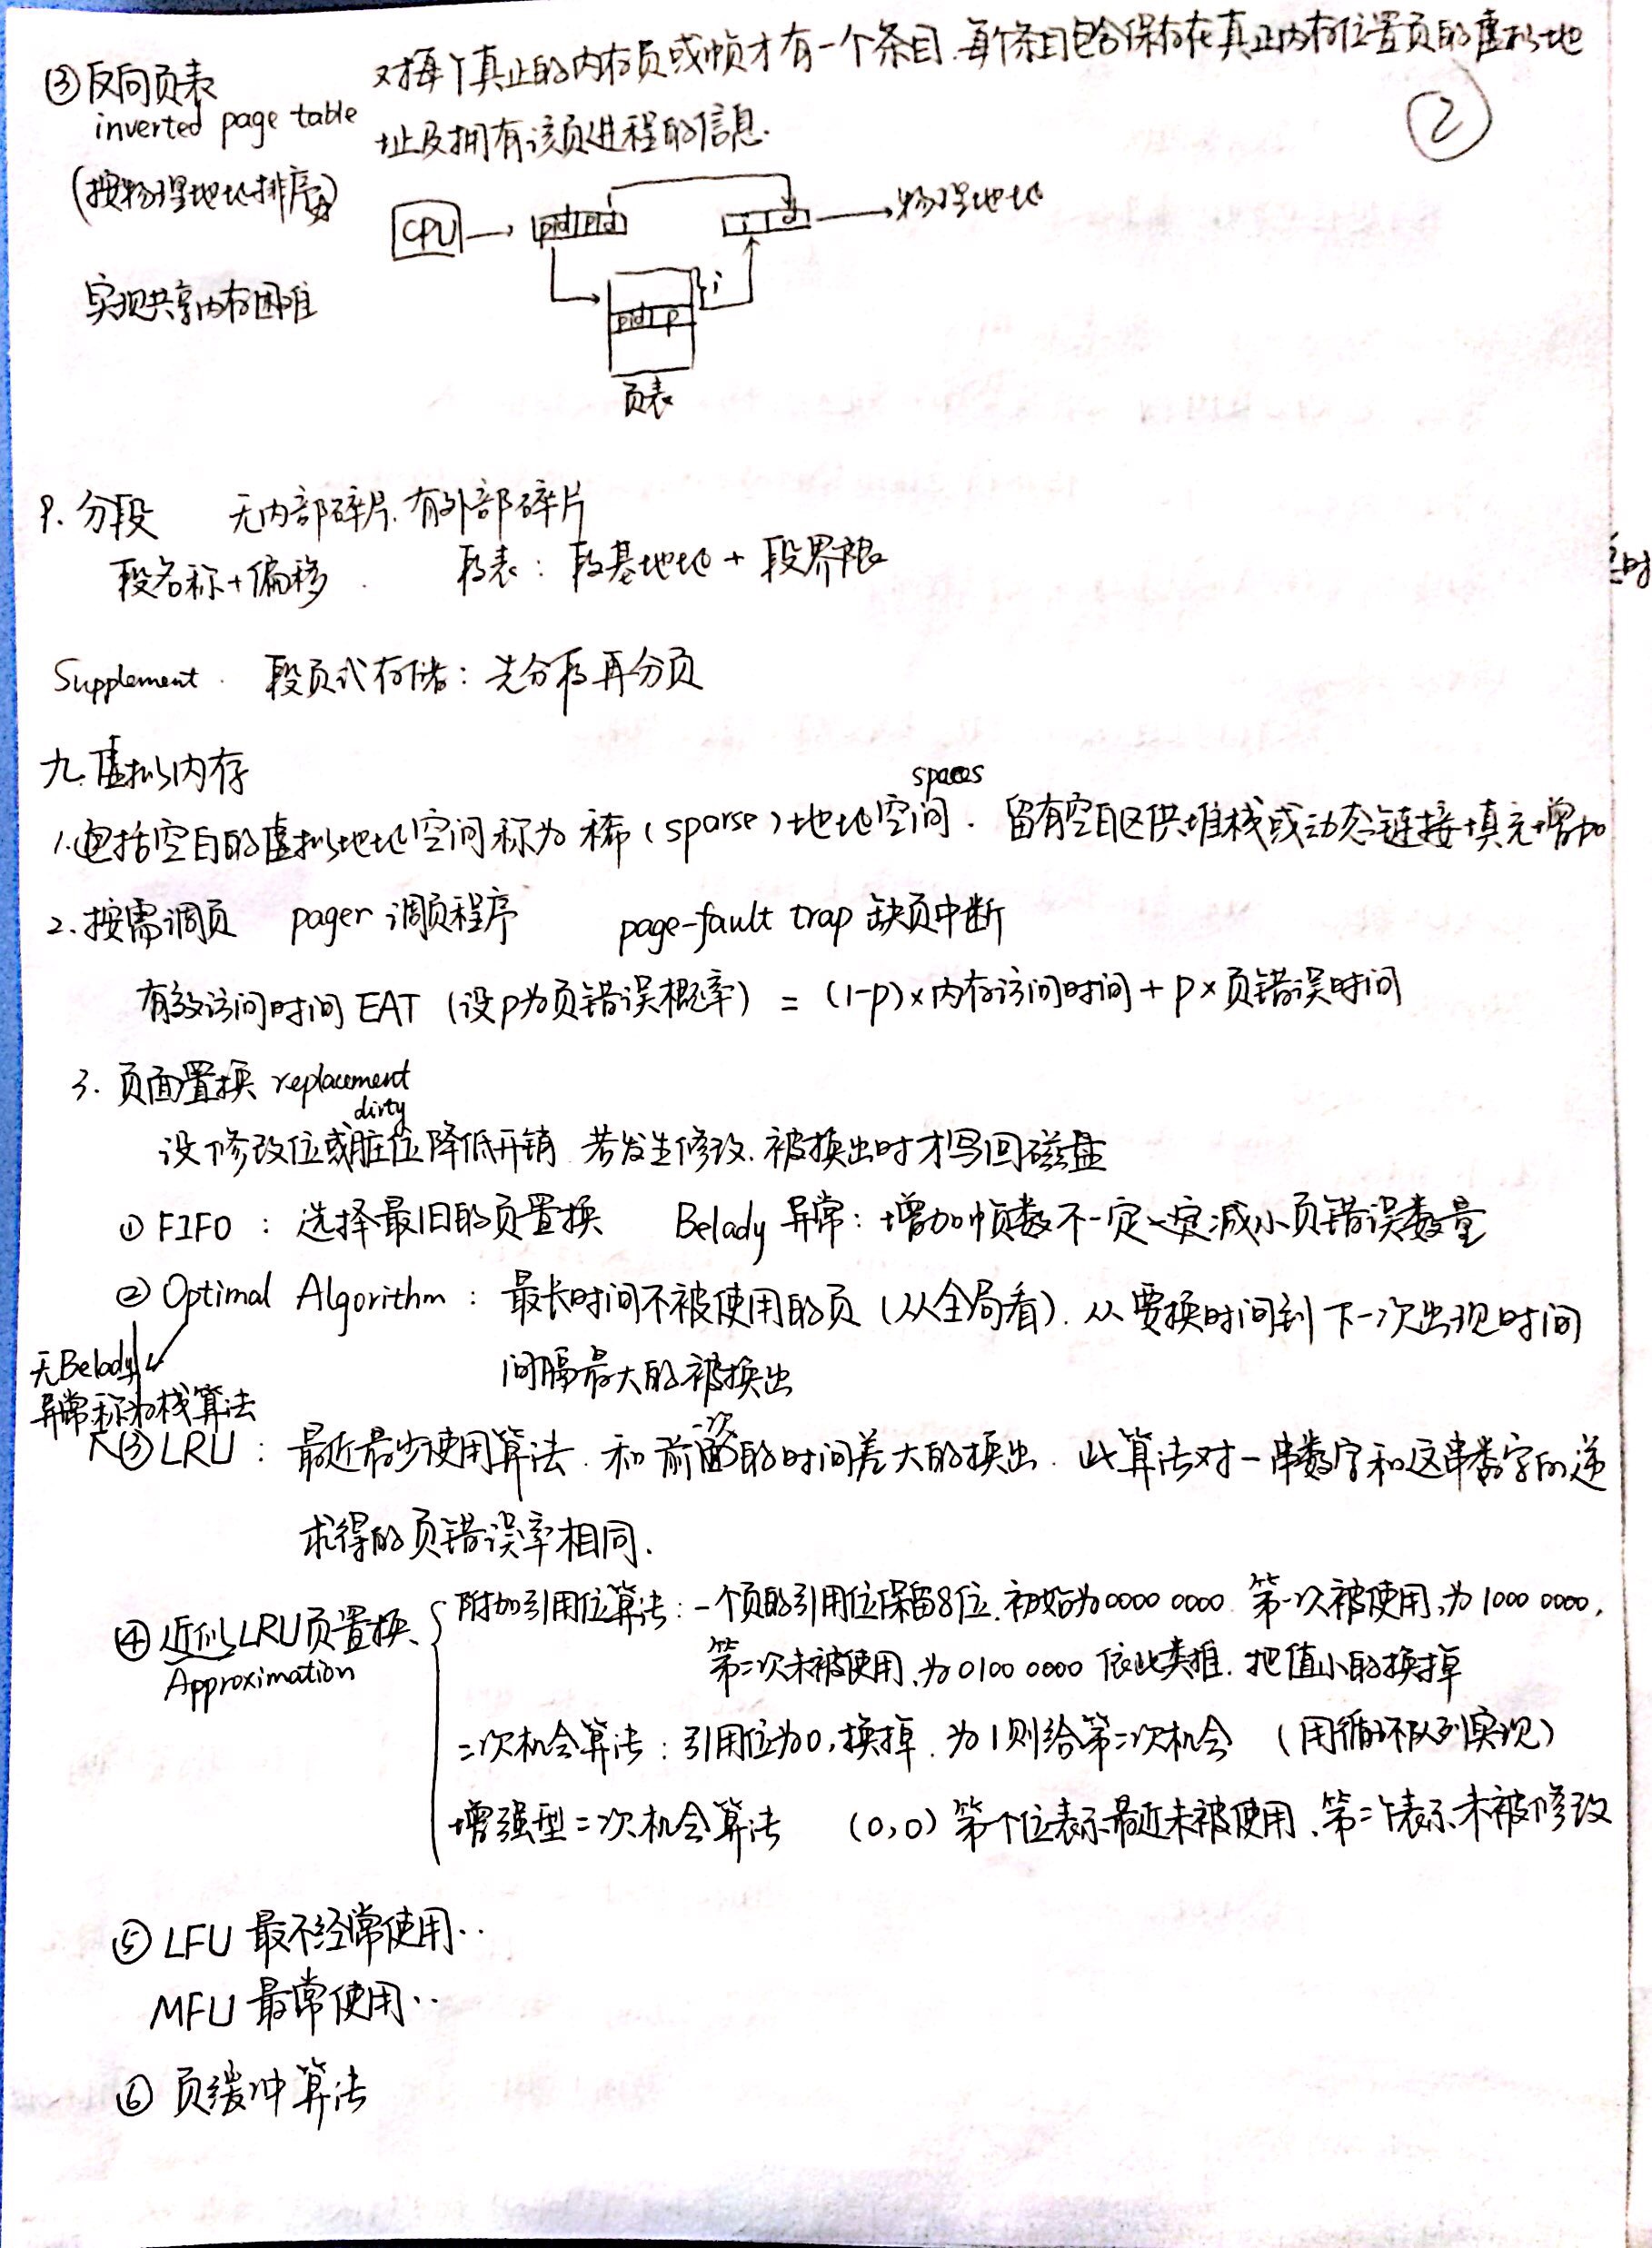 ③反向页表 对每个真正的内存页或帧才有一个条目.每个条目包含保存在真正内存位置页的虚拟地
inverted page table 址及拥有该页进程的信息.
②
(按物理地址排序)
CPU pid p d i d 物理地址
实现共享内存困难
i
pid p
页表
8. 分段 无内部碎片.有外部碎片
段名称+偏移. 段表: 段基地址+段界限
Supplement. 段页式存储: 先分段再分页
九.虚拟内存
spaces
1.包括空白的虚拟地址空间称为稀(sparse)地址空间. 留有空白区供堆栈或动态链接填充增加
2.按需调页 pager 调页程序 page-fault trap 缺页中断
有效访问时间EAT (设p为页错误概率) = (1-p)×内存访问时间+p×页错误时间
3. 页面置换 replacement
dirty
设修改位或脏位降低开销 若发生修改.被换出时才写回磁盘
① FIFO : 选择最旧的页置换 Belady 异常: 增加帧数不一定一定减小页错误数量
② Optimal Algorithm : 最长时间不被使用的页(从全局看). 从要换时间到下一次出现时间
间隔最大的被换出
无Belady
异常称为栈算法
③LRU : 最近最少使用算法. 和前一次的时间差大的换出. 此算法对一串数字和这串数字的逆
求得的页错误率相同.
④近似LRU页置换
Approximation
附加引用位算法: 一个页的引用位保留8位.初始为0000 0000 第一次被使用,为1000 0000,
第二次未被使用,为0100 0000 依此类推. 把值小的换掉
二次机会算法: 引用位为0,换掉.为1则给第二次机会 (用循环队列实现)
增强型二次机会算法 (0,0) 第一个位表示最近未被使用,第二个表示未被修改
⑤ LFU 最不经常使用..
MFU 最常使用..
⑥ 页缓冲算法